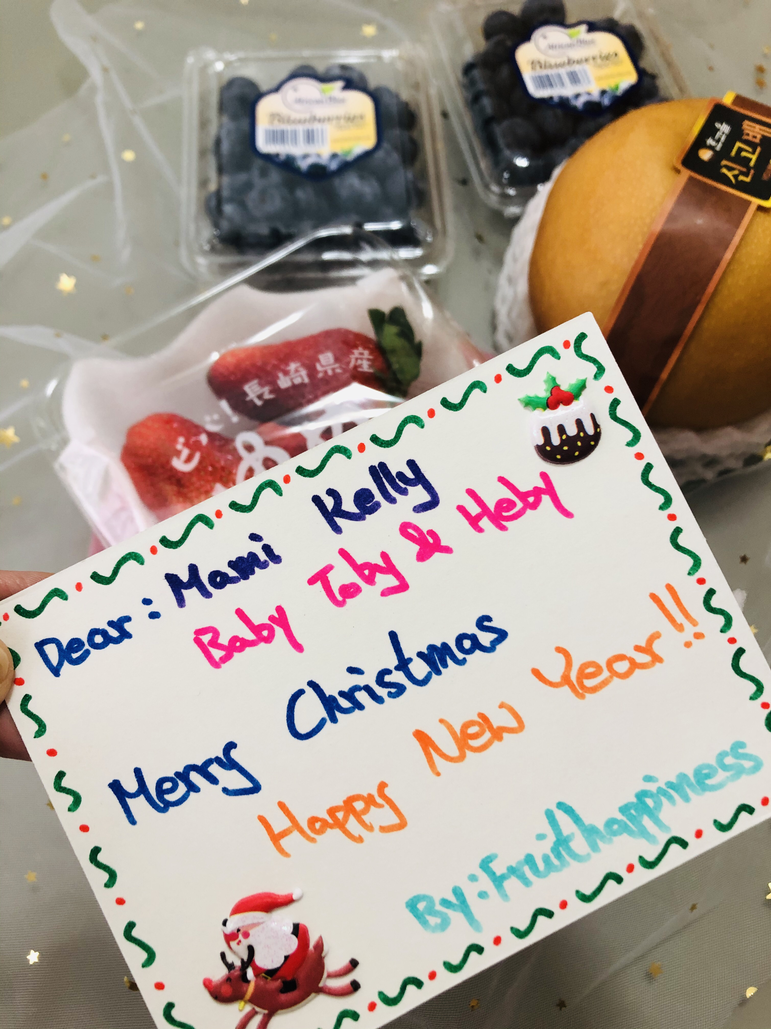 Blueberries
Blueberries
신고배
長崎県産
Dear: Mami Kelly
Baby Toby & Heby
Merry Christmas
Happy New Year!!
By: Fruithappiness